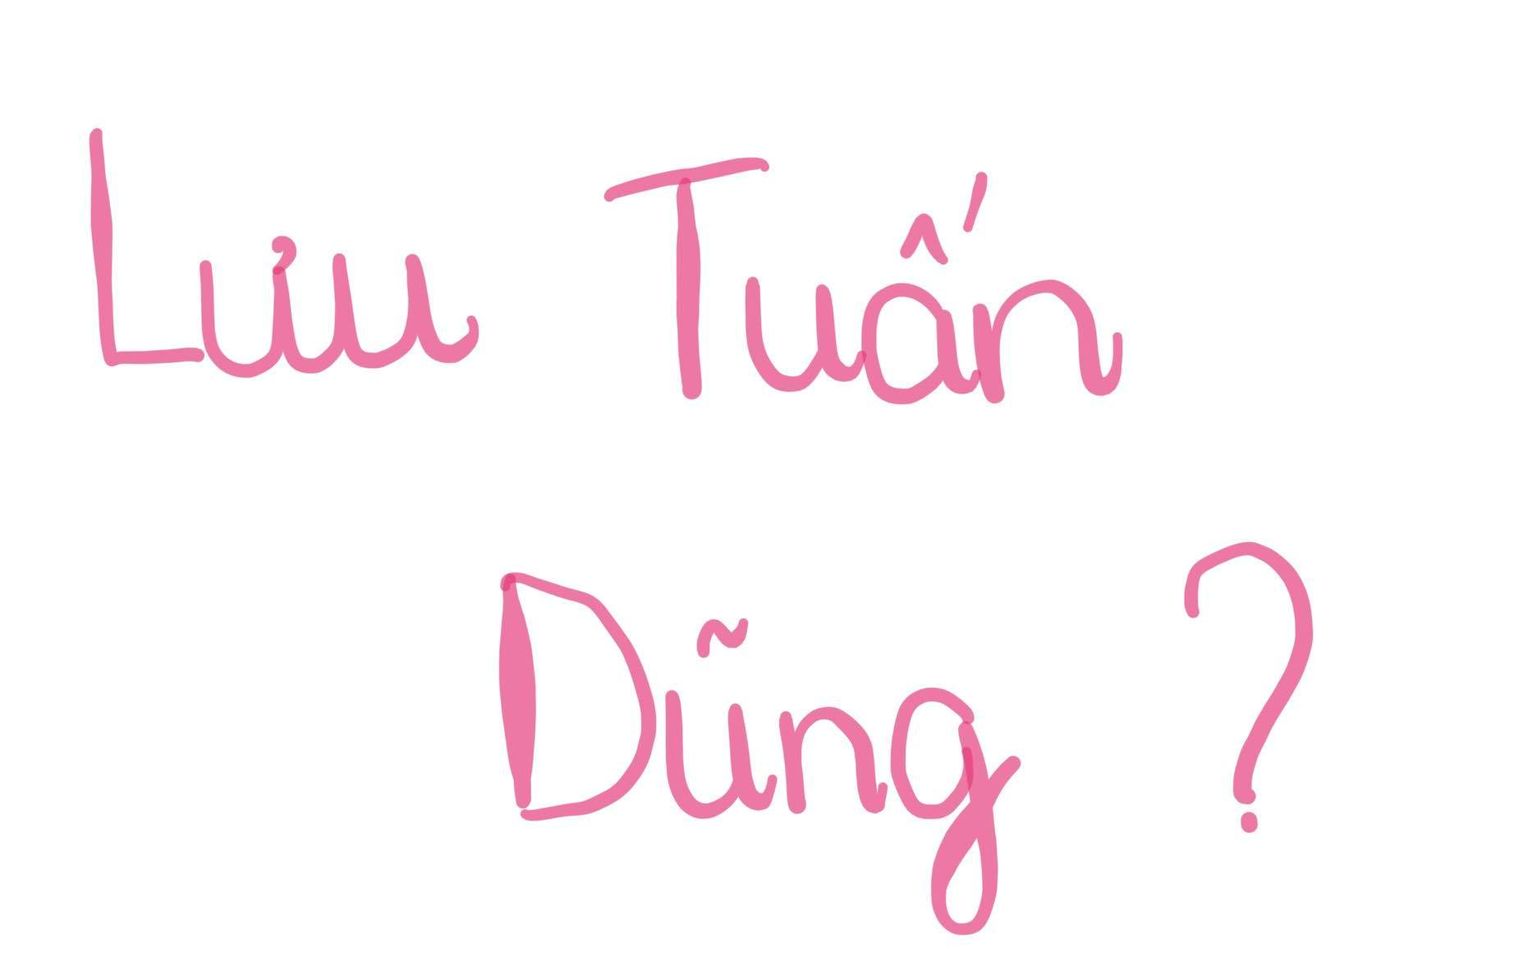 Lưu Tuấn
Dũng ?